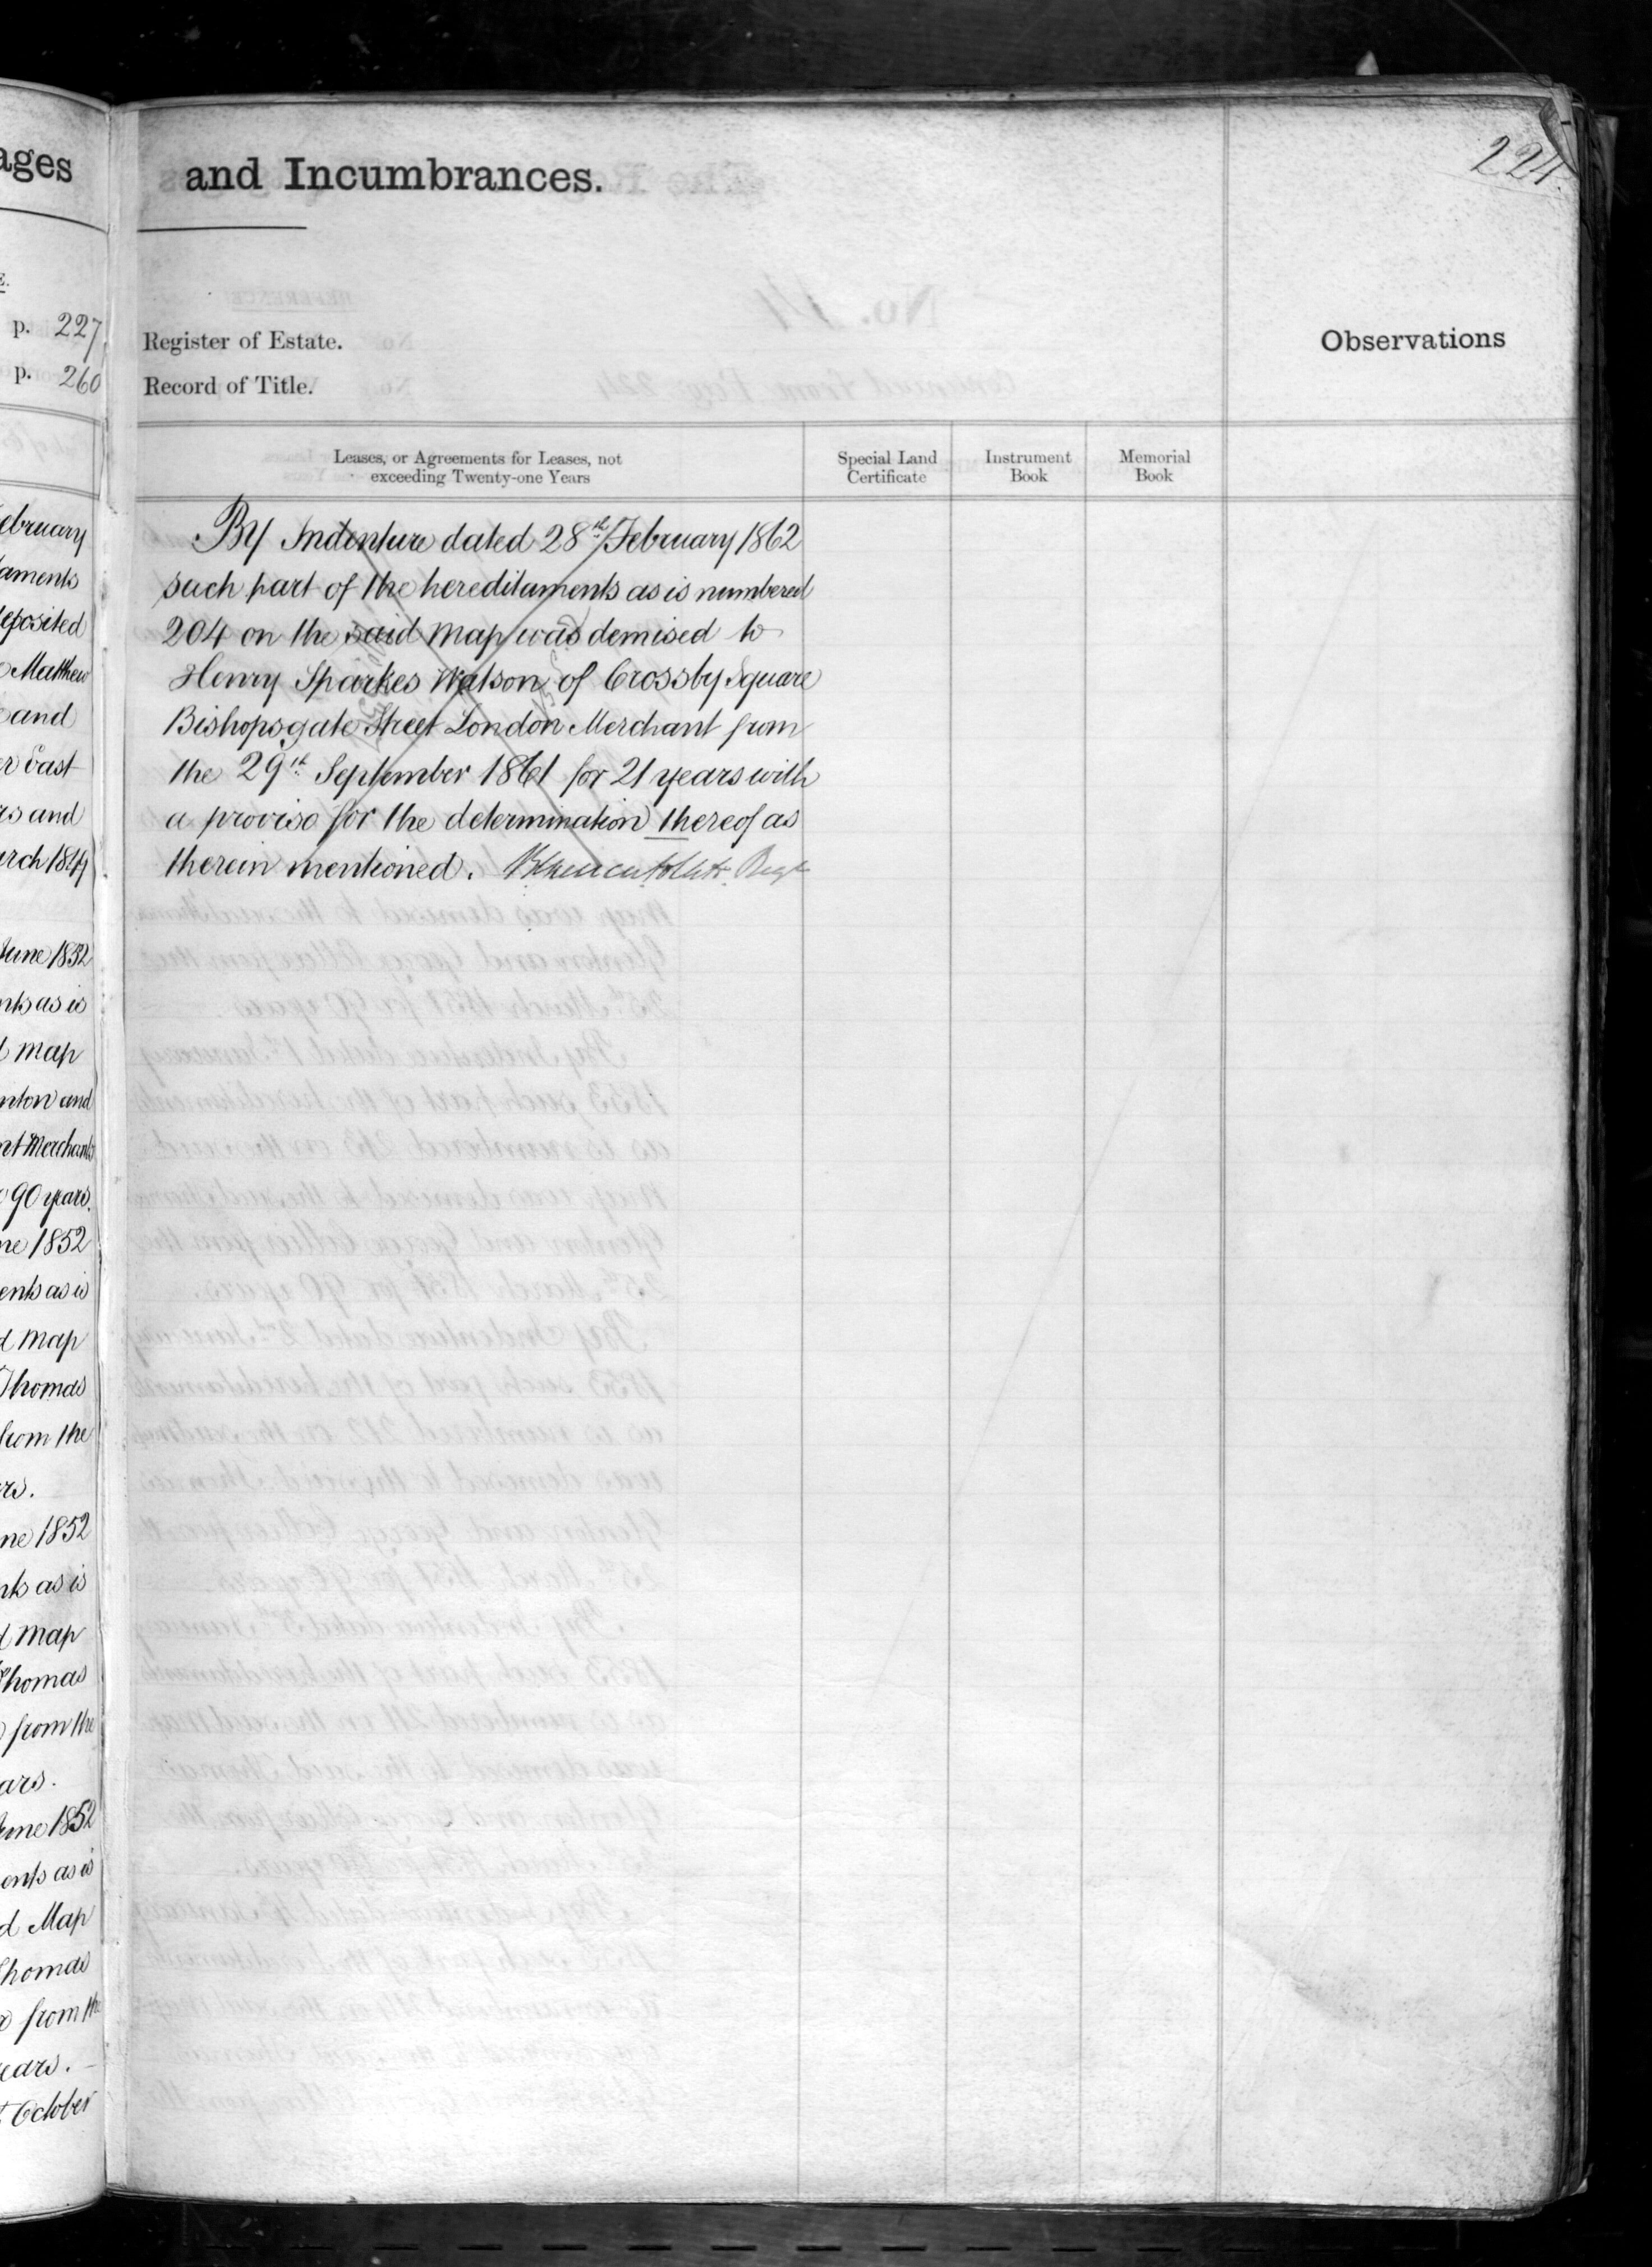 ages
E.
p. 227
p. 260
ebruary
aments
eposited
Matthew
and
er East
rs and
arch 1849
June 1852
nts as is
d map
nton and
nt Merchants
90 years.
ne 1852
ents as is
d map
Thomas
from the
rs.
ne 1852
nts as is
d map
Thomas
from the
ars.
June 1852
ents as is
d Map
Thomas
from the
years.
October
224.
and Incumbrances.
Register of Estate.
Record of Title.
Observations
Leases, or Agreements for Leases, not
exceeding Twenty-one Years
Special Land
Certificate
Instrument
Book
Memorial
Book
By Indenture dated 28th February 1862
such part of the hereditaments as is numbered
204 on the said map was demised to
Henry Sparkes Watson of Crossby Square
Bishopsgate Street London Merchant from
the 29th September 1861 for 21 years with
a proviso for the determination thereof as
therein mentioned.